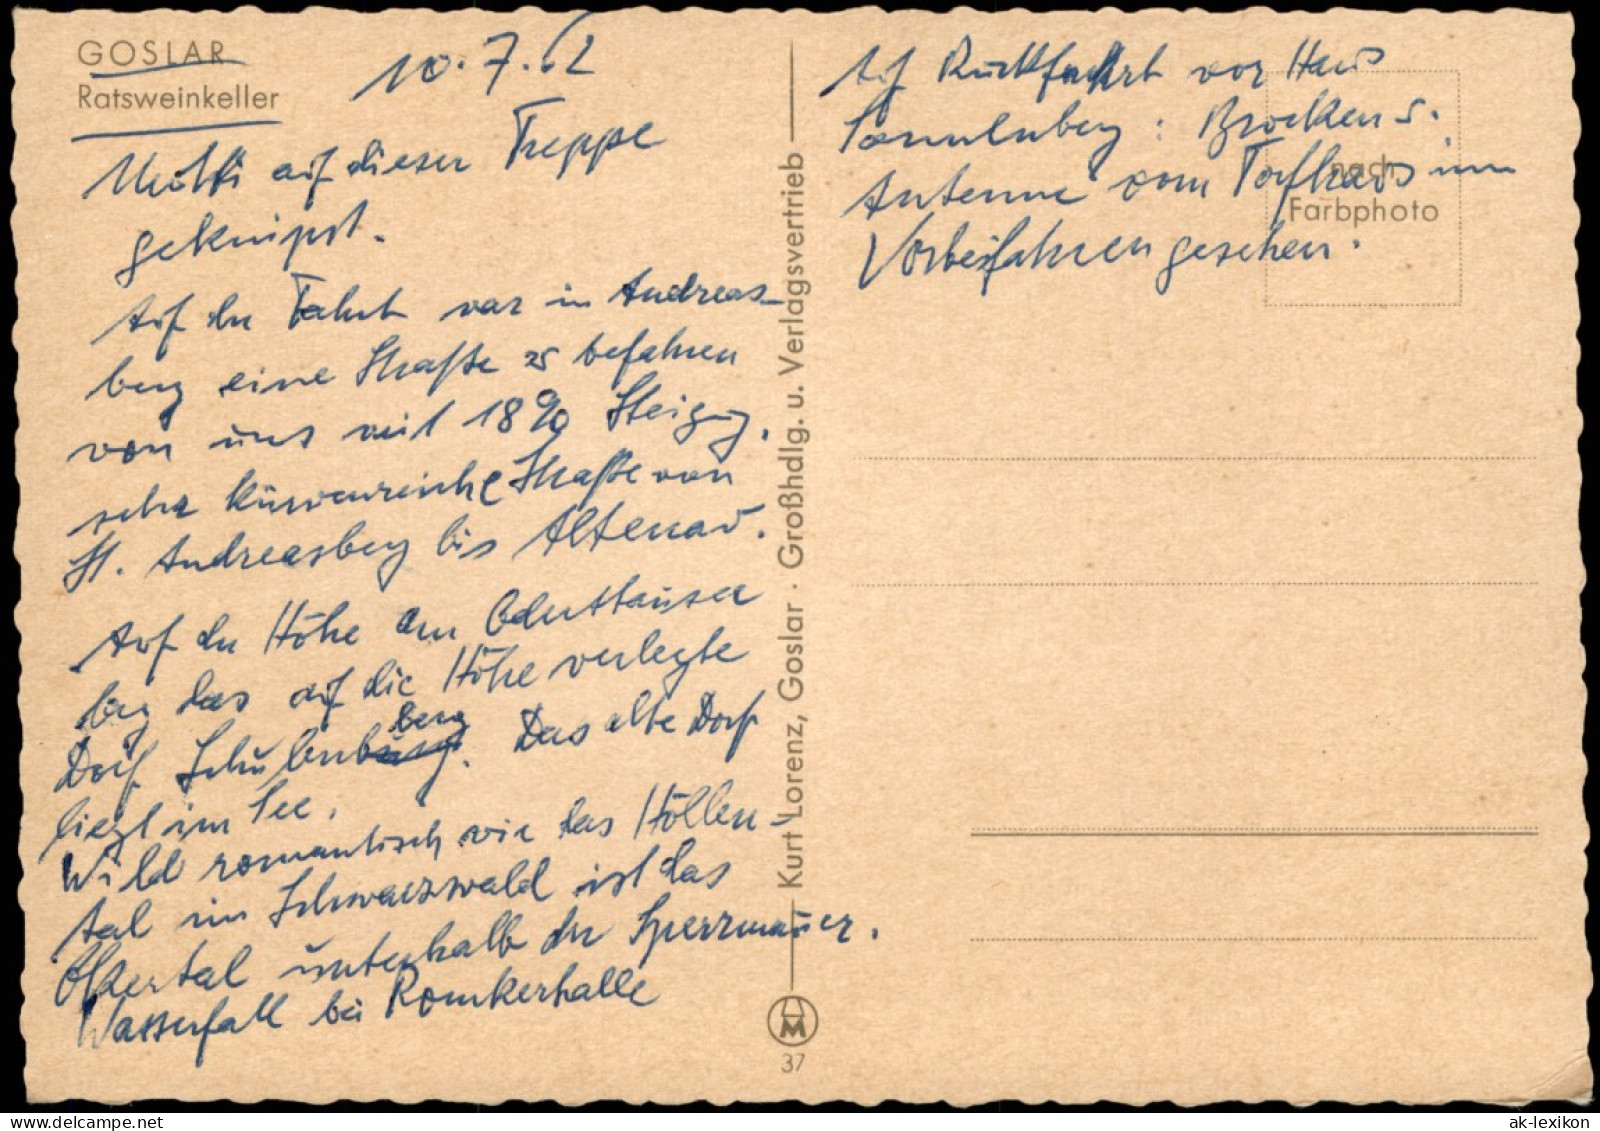 GOSLAR
Ratsweinkeller
10.7.62
Mutti auf dieser Treppe
geknipst.
Auf der Fahrt war in Andreas-
berg eine Straße zu befahren
von uns mit 18% Steigung,
sehr kurvenreiche Straße von
St. Andreasberg bis Altenau.
Auf der Höhe am
berg das auf die Höhe verlegte
Dorf Schulenberg. Das alte Dorf
liegt im See.
Wild romantisch wie das Höllen-
tal im Schwarzwald ist das
Okertal unterhalb der Sperrmauer.
Wasserfall bei Romkerhalle
Auf Rückfahrt vor Haus
Sonnenberg: Brocken u.
Antenne vom Torfhaus im
Vorbeifahren gesehen.
nach
Farbphoto
Kurt Lorenz, Goslar · Großhdlg. u. Verlagsvertrieb
M
37
ak-lexikon.com